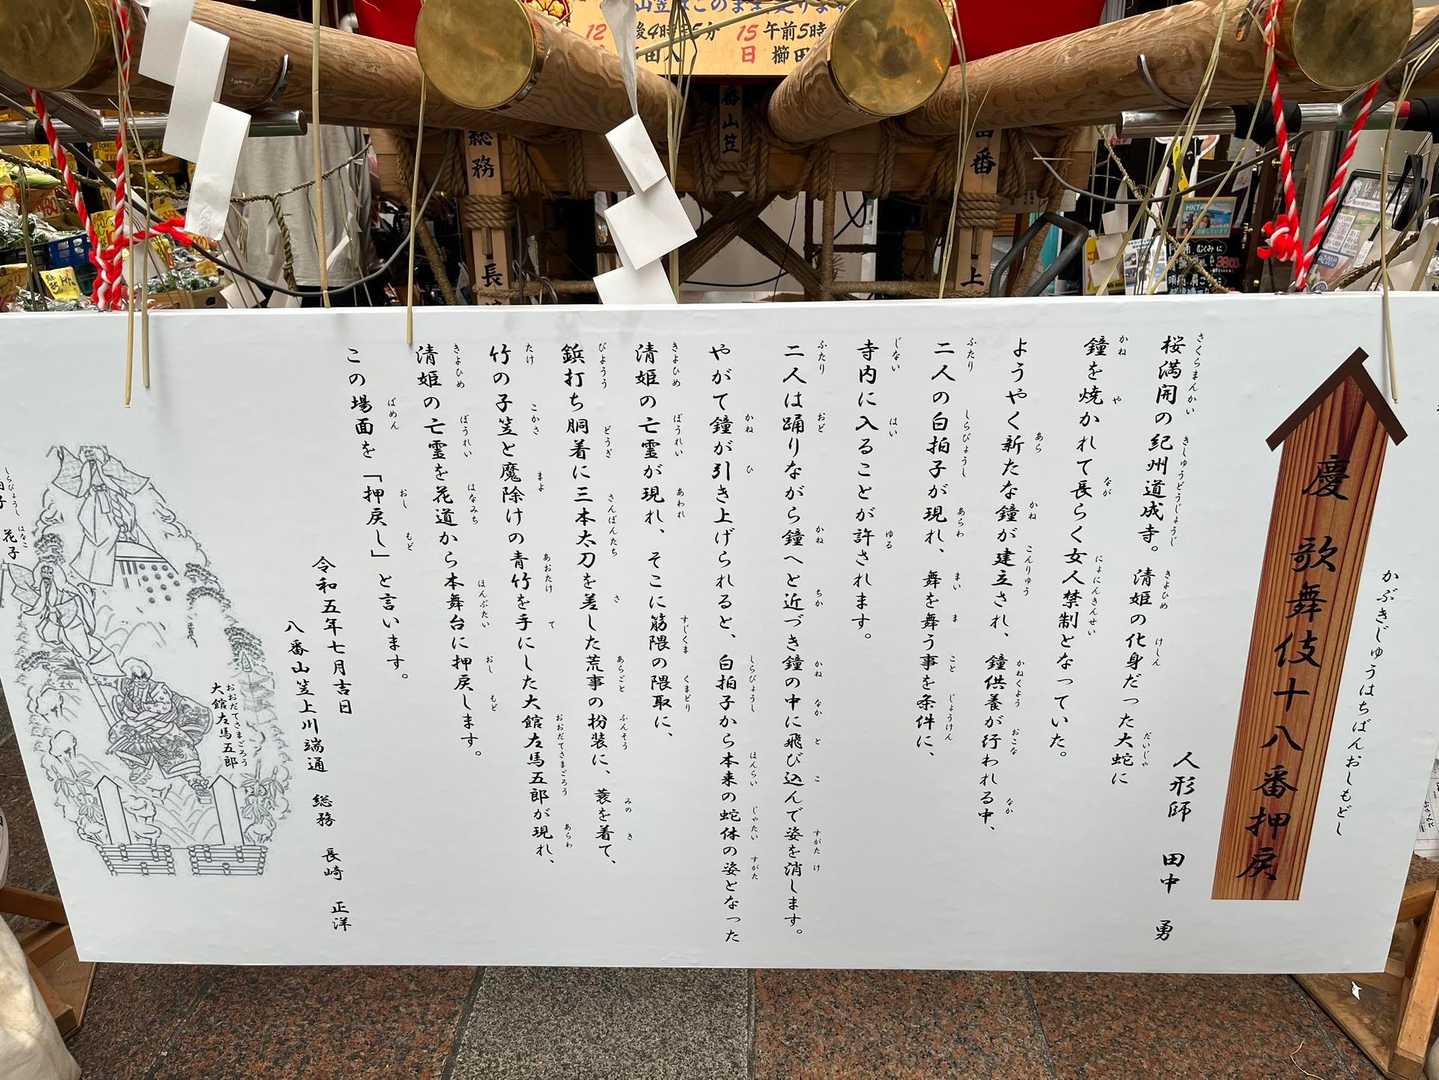 慶 歌舞伎十八番押戻
かぶきじゅうはちばんおしもどし
人形師 田中 勇
桜満開の紀州道成寺。清姫の化身だった大蛇に
鐘を焼かれて長らく女人禁制となっていた。
ようやく新たな鐘が建立され、鐘供養が行われる中、
二人の白拍子が現れ、舞を舞う事を条件に、
寺内に入ることが許されます。
二人は踊りながら鐘へと近づき鐘の中に飛び込んで姿を消します。
やがて鐘が引き上げられると、白拍子から本来の蛇体の姿となった
清姫の亡霊が現れ、そこに筋隈の隈取に、
鋲打ち胴着に三本太刀を差した荒事の扮装に、蓑を着て、
竹の子笠と魔除けの青竹を手にした大館左馬五郎が現れ、
清姫の亡霊を花道から本舞台に押戻します。
この場面を「押戻し」と言います。
令和五年七月吉日
八番山笠上川端通 総務 長崎 正洋
大館左馬五郎
おおだてさまごろう
花子
はなこ
しらびょうし
総務
番山笠
12
15日
午前5時